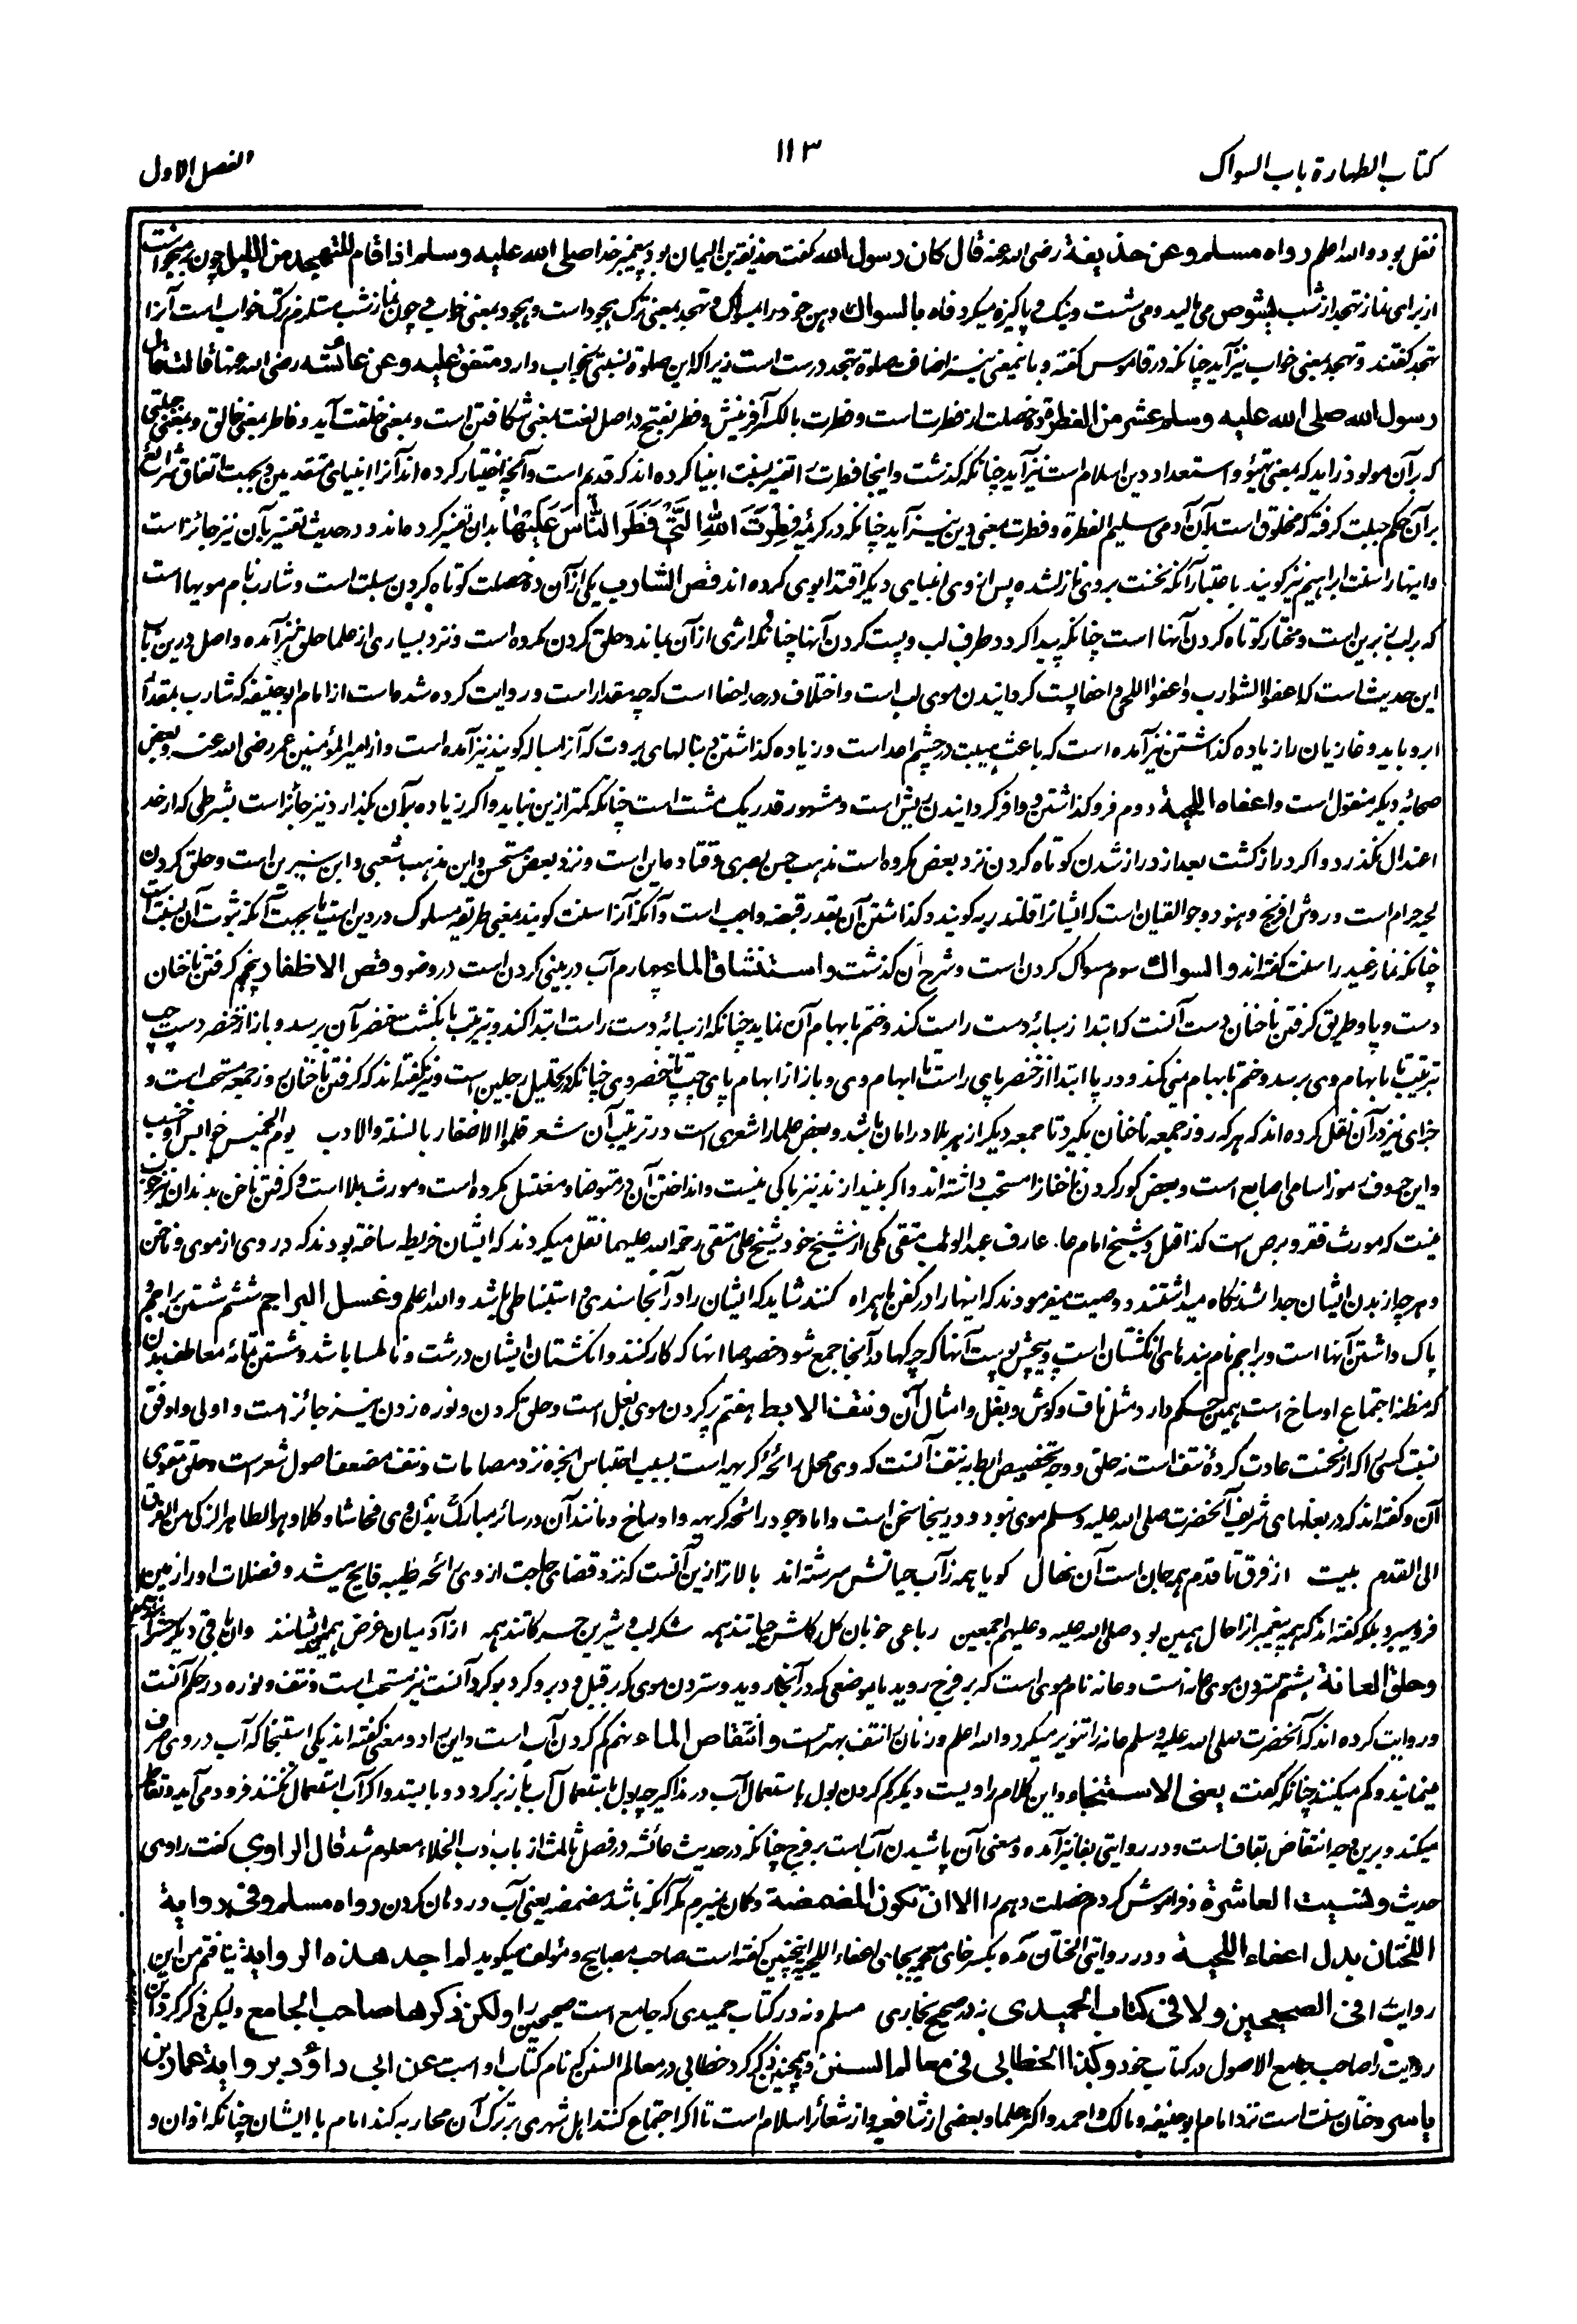 کتاب الطهارة باب السواک
۱۱۳
الفصل الاول
نقل بود والله اعلم رواه مسلم وعن حذیفة رضی الله عنه قال کان رسول الله گفت حذیفة بن الیمان بود پیغمبر خدا صلی الله علیه وسلم اذا قام للتهجد من اللیل چون برمیخواست
از برای نماز تهجد از شب یشوص می مالید و می شست و نیک پاکیزه میکرد فاه بالسواک دهن خود را بمسواک و تهجد بمعنی ترک هجود است و هجود بمعنی خواب و چون نماز شب مستلزم ترک خواب است آنرا
تهجد گفتند و تهجد بمعنی خواب نیز آید چنانکه در قاموس گفته و باینمعنی نیز اضافت صلوة بتهجد درست است زیراکه این صلوة نسبتی بخواب دارد متفق علیه وعن عائشه رضی الله عنها قالت قال
رسول الله صلی الله علیه وسلم عشر من الفطرة ده خصلت از فطرت است و فطرت بالکسر آفرینش و فطر بفتح در اصل لغت بمعنی شگافتن است و بمعنی خلقت آید و فاطر بمعنی خالق و بمعنی جبلتی
که بر آن مولود زاید که بمعنی تهیؤ و استعداد دین اسلام است نیز آید چنانکه گذشت و اینجا فطرت را تفسیر بسنت انبیا کرده اند که قدیم است و آنچه اختیار کرده اند آنرا انبیای متقدمین و بجهت اتفاق شرائع
بر آن حکم جبلت گرفته که مخلوق است بر آن آدمی سلیم الفطرة و فطرت بمعنی دین نیز آید چنانکه در کریمه فِطْرَتَ اللهِ الَّتِیْ فَطَرَ النَّاسَ عَلَیْهَا بدان تفسیر کرده اند و در حدیث تفسیر بآن نیز جائز است
و اینها را سنت ابراهیم نیز گویند باعتبار آنکه نخست بر وی نازل شده پس از وی انبیای دیگر اقتدا بوی کرده اند قص الشارب یکی از آن ده خصلت کوتاه کردن سبلت است و شارب نام مویها است
که بر لب زبرین است و مختار کوتاه کردن آنها است چنانکه پیدا گردد طرف لب و پست کردن آنها چنانکه اثری از آن بماند و حلق کردن مکروه است و نزد بسیاری از علما حلق نیز آمده و اصل درین باب
این حدیث است که احفوا الشوارب و اعفوا اللحی و احفا پست گردانیدن موی لب است و اختلاف در حد احفا است که چه مقدار است و روایت کرده شده است از امام ابوحنیفه که شارب بمقدار
ابرو باید و غازیان را زیاده گذاشتن نیز آمده است که باعث هیبت در چشم اعدا است و زیاده گذاشتن دنبالهای بروت که آنرا سباله گویند نیز آمده است و از امیر المؤمنین عمر رضی الله عنه و بعض
صحابه دیگر منقول است واعفاء اللحیة دوم فرو گذاشتن و وافر گردانیدن ریش است و مشهور قدر یک مشت است چنانکه کمتر ازین نباید و اگر زیاده بر آن بگذارد نیز جائز است بشرطی که از حد
اعتدال نگذرد و اگر دراز گشت بعد از دراز شدن کوتاه کردن نزد بعض مکروه است مذهب حسن بصری و قتاده این است و نزد بعض مستحسن و این مذهب شعبی و ابن سیرین است و حلق کردن
لحیه حرام است و روش افرنج و هنود و جوالقیان است که ایشانرا قلندریه گویند و گذاشتن آن بقدر قبضه واجب است و آنکه آنرا سنت گویند بمعنی طریقه مسلوک در دین است یا بجهت آنکه ثبوت آن بسنت است
چنانکه نماز عید را سنت گفته اند والسواک سوم مسواک کردن است و شرح آن گذشت واستنشاق الماء چهارم آب در بینی کردن است در وضو وقص الاظفار پنجم گرفتن ناخنان
دست و پا و طریق گرفتن ناخنان دست آنست که ابتدا از سبابه دست راست کند و ختم بابهام آن نماید چنانکه از سبابه دست راست ابتدا کند و بترتیب تا بانگشت خنصر آن برسد و باز از خنصر دست چپ
بترتیب تا بابهام وی برسد و ختم بابهام یمنی کند و در پا ابتدا از خنصر پای راست تا ابهام وی و باز از ابهام پای چپ تا خنصر وی چنانکه در تخلیل رجلین است و نیز گفته اند که گرفتن ناخنان روز جمعه مستحب است و
خبرای نیز در آن نقل کرده اند که هر که روز جمعه ناخنان بگیرد تا جمعه دیگر از هر بلا در امان باشد و بعض علما را شعری است در ترتیب آن شعر قلموا الاظفار بالسنة والادب یوم الخمیس خوابس اوخسب
و این حروف رموز اسامی اصابع است و بعض گور کردن ناخنانرا مستحب داشته اند و اگر بیندازند نیز باکی نیست و انداختن آن در متوضا و مغتسل مکروه است و مورث بلا است و گرفتن ناخن بدندان نیز خوب
نیست که مورث فقر و برص است کذا قیل و شیخ امام ما عارف عبد الوهاب متقی مکی از شیخ خود شیخ علی متقی رحمة الله علیهما نقل میکردند که ایشان خریطه ساخته بودند که در وی از موی و ناخن
و هر چه از بدن ایشان جدا شد نگاه میداشتند و وصیت میفرمودند که اینها را در کفن با همراه کنند شاید که ایشان را در آنجا سندی و استنباطی باشد والله اعلم وغسل البراجم ششم شستن براجم و
پاک داشتن آنها است و براجم نام بندهای انگشتان است و پیچش پوست آنها که چرکها در آنجا جمع شود خصوصا آنها که کار کنند و انگشتان ایشان درشت و ناملسا باشد و شستن بقائه معاطف بدن
که مظنه اجتماع اوساخ است همین حکم دارد مثل ناف و گوش و بغل و امثال آن ونتف الابط هفتم برکردن موی بغل است و حلق کردن و نوره زدن نیز جائز است و اولی و اوفق
نسبت کسی را که از نخست عادت کرده نتف است نه حلق و وجه تخصیص ابط به نتف آنست که وی محل رائحه کریهه است بسبب احتباس ابخره نزد مسامات و نتف مضعف اصول شعر است و حلق مقوی
آن و گفته اند که در بغلهای شریف آنحضرت صلی الله علیه وسلم موی نبود و درینجا سخن است و اما وجود رائحه کریهه و اوساخ و مانند آن در سائر مبارک بدن وی فحاشا و کلا و هو الطاهر الزکی من الفرق
الی القدم بیت از فرق تا قدم همه جان است آن نهال گویا همه ز آب حیاتش سرشته اند بالاتر ازین آنست که نزد قضای حاجت از وی رائحه طیبه فایح میشد و فضلات او را زمین
فرو میبرد بلکه گفته اند که همه پیغمبر از حال همین بود صلی الله علیه و علیهم اجمعین رباعی خوبان گل گلشن حیاتند همه شکر لب و شیرین حرکاتند همه از آدمیان غرض همین ایشانند وان باقی دیگر
وحلق العانة هشتم ستردن موی عانه است و عانه نام موی است که بر فرج روید یا موضعی که در آنجا روید و ستردن موی که بر قبل و دبر و گرد بر گرد آنست نیز مستحب است و نتف و نوره در حکم آنست
و روایت کرده اند که آنحضرت صلی الله علیه وسلم عانه را تنویر میکرد والله اعلم و زنان را نتف بهتر است وانتقاص الماء نهم کم کردن آب است و این را دو معنی گفته اند یکی استنجا که آب در وی صرف
مینمایند و کم میکنند چنانکه گفت یعنی الاستنجاء و این کلام راویست دیگر کم کردن بول باستعمال آب در مذاکیر چه بول باستعمال آب باز برگردد و بایستد و اگر آب استعمال نکنند فرود می آید و تقاطر
میکند و برین وجه انتقاص بقاف است و در روایتی بفا نیز آمده و معنی آن پاشیدن آب است بر فرج چنانکه در حدیث عائشه در فصل ثالث از باب ادب الخلاء معلوم شد قال الراوی گفت راوی
حدیث ونسیت العاشرة و فراموش کردم خصلت دهم را الا ان تکون المضمضة و گمان نمیبرم مگر آنکه باشد مضمضه یعنی آب در دهان کردن رواه مسلم وفی روایة
الختان بدل اعفاء اللحیة و در روایتی الختان آمده بکسر خای معجمه بجای اعفاء اللحیه اینچنین گفته است صاحب مصابیح و مؤلف میگوید لم اجد هذه الروایة نیافتم من این
روایت را فی الصحیحین ولا فی کتاب الحمیدی نه در صحیح بخاری مسلم و نه در کتاب حمیدی که جامع است صحیحین را ولکن ذکرها صاحب الجامع ولیکن ذکر کرد این
روایت را صاحب جامع الاصول در کتاب خود وکذا الخطابی فی معالم السنن و همچنین ذکر کرد خطابی در معالم السنن که نام کتاب او است عن ابی داؤد بروایة عمار بن
یاسر و ختان سنت است نزد امام ابوحنیفه و مالک و احمد و اکثر علما و بعضی از شافعیه و از شعائر اسلام است تا اگر اجتماع کنند اهل شهری بر ترک آن محاربه کند امام با ایشان چنانکه اذان و